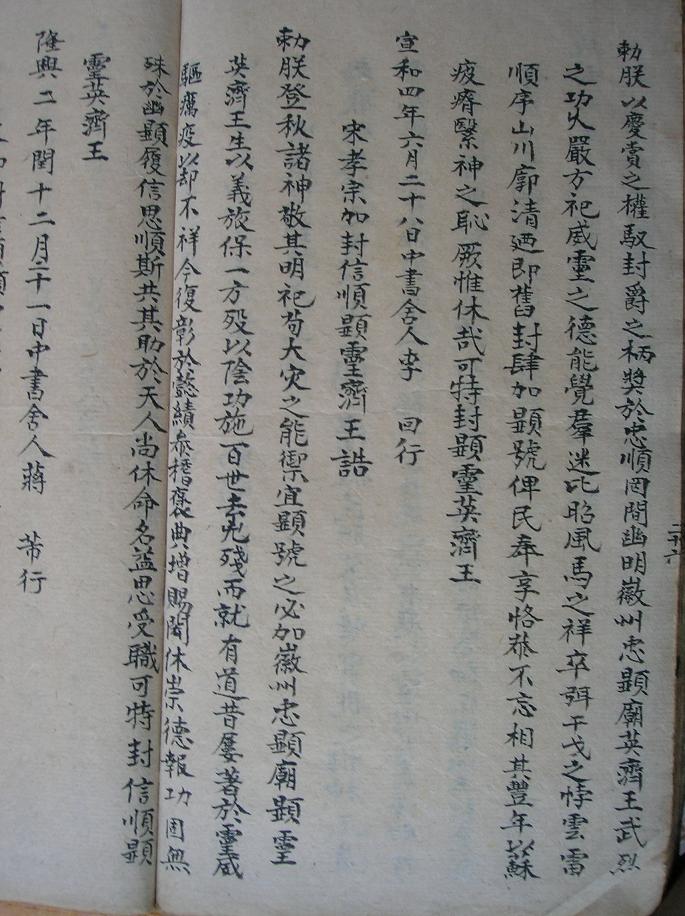 勅朕以慶賞之權馭封爵之柄奬於忠順罔間幽明徽州忠顯廟英濟王武烈
之功火嚴方祀威靈之德能覺羣迷比昭風馬之祥卒弭干戈之悖雲雷
順序山川廓清迺即舊封肆加顯號俾民奉享恪恭不忘相其豐年以蘇
疲瘠繄神之恥厥惟休哉可特封顯靈英濟王
宣和四年六月二十八日中書舍人李 回行
宋孝宗加封信順顯靈濟王誥
勅朕登秋諸神敬其明祀苟大灾之能禦宜顯號之必加徽州忠顯廟顯靈
英濟王生以義旅保一方殁以陰功施百世去兇殘而就有道昔屡著於靈威
驅癘疫以却不祥今復彰於懿績叅稽褒典增賜閟休崇德報功固無
殊於幽顯履信思順斯共其助於天人尚休命名益思受職可特封信順顯
靈英濟王
隆興二年閏十二月二十一日中書舍人蔣 芾行
二十六